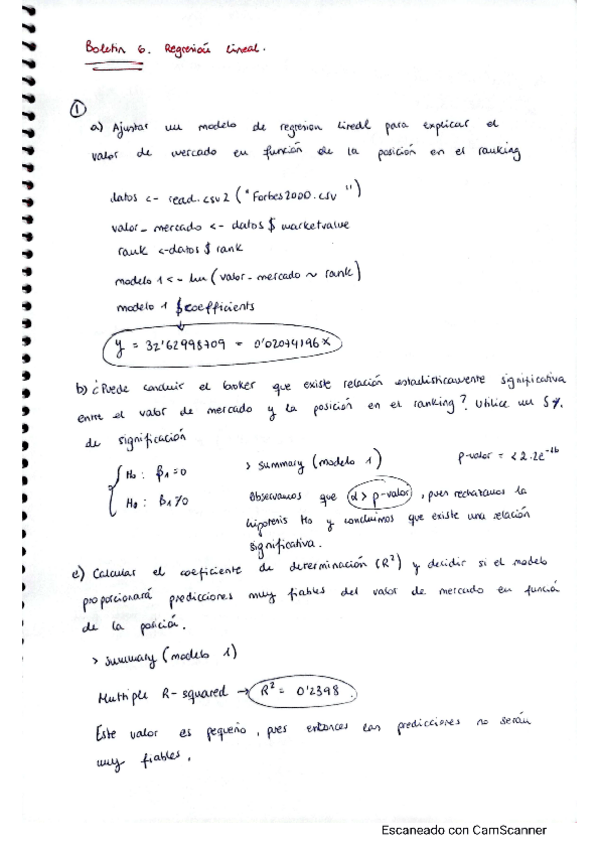 Boletín 6. Regresión lineal.
①
a) Ajustar un modelo de regresion lineal para explicar el
valor de mercado en función de la posición en el ranking
datos <- read.csv2 ("Forbes2000.csv")
valor_mercado <- datos $ marketvalue
rank <- datos $ rank
modelo 1 <- lm (valor-mercado ~ rank)
modelo 1 $ coefficients
y = 32'62998709 - 0'02074196x
b) ¿Puede concluir el broker que existe relación estadísticamente significativa
entre el valor de mercado y la posición en el ranking? Utilice un 5%
de significación
H0 : β1 = 0
> summary (modelo 1)
p-valor = < 2.2e-16
β1 ≠ 0
Observamos que α > p-valor, pues rechazamos la
hipotesis H0 y concluimos que existe una relación
significativa.
c) Calcular el coeficiente de determinación (R²) y decidir si el modelo
proporcionará predicciones muy fiables del valor de mercado en función
de la posición.
> summary (modelo 1)
Multiple R-squared → R² = 0'2398
Este valor es pequeño, pues entonces las predicciones no serán
muy fiables.
Escaneado con CamScanner